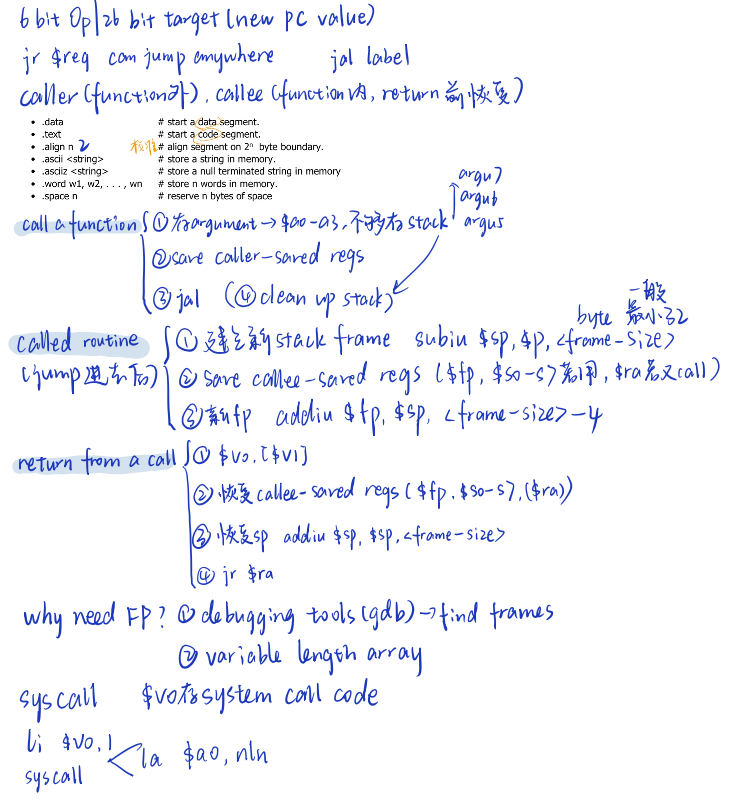 6 bit Op | 26 bit target (new PC value)
jr $reg can jump anywhere jal label
caller (function外), callee (function内, return前恢复)
• .data # start a data segment.
• .text # start a code segment.
• .align n 2 校准 # align segment on 2ⁿ byte boundary.
• .ascii <string> # store a string in memory.
• .asciiz <string> # store a null terminated string in memory
• .word w1, w2, . . . , wn # store n words in memory.
• .space n # reserve n bytes of space
argu7
argu6
argu5
call a function ①存argument → $a0-a3, 不够存stack
②save caller-saved regs
③jal (④clean up stack)
一般
byte 最小32
called routine ①建立新stack frame subiu $sp, $p, <frame-size>
(jump进来后) ②save callee-saved regs ($fp, $s0-s7若用, $ra若又call)
③新fp addiu $fp, $sp, <frame-size>-4
return from a call ①$v0, [$v1]
②恢复callee-saved regs ($fp, $s0-s7, ($ra))
③恢复sp addiu $sp, $sp, <frame-size>
④jr $ra
why need FP? ①debugging tools (gdb) → find frames
②variable length array
syscall $v0存system call code
li $v0, 1
la $a0, nln
syscall